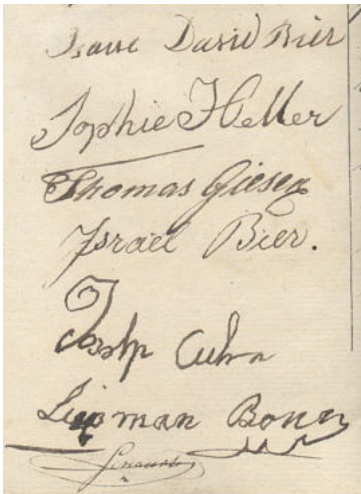 Isaac David Bier
Sophie Heller
Thomas Giesen
Israel Bier.
Joseph Cuhn
Lipman Bonn